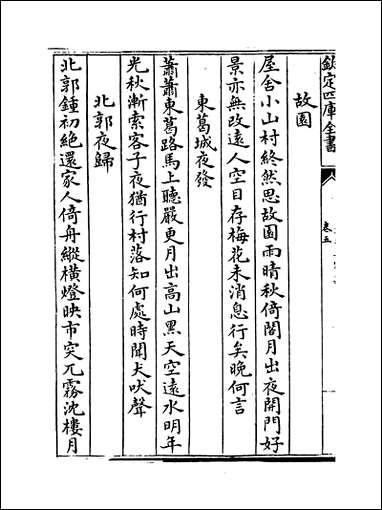 欽定四庫全書
卷五
故園
屋舍小山村終然思故園雨晴秋倚閣月出夜開門好
景亦無改遠人空目存梅花未消息行矣晚何言
東葛城夜發
蕭蕭東葛路馬上聽嚴更月出高山黑天空遠水明年
光秋漸索客子夜猶行村落知何處時聞犬吠聲
北郭夜歸
北郭鍾初絶還家人倚舟縱橫燈映市突兀霧沈樓月